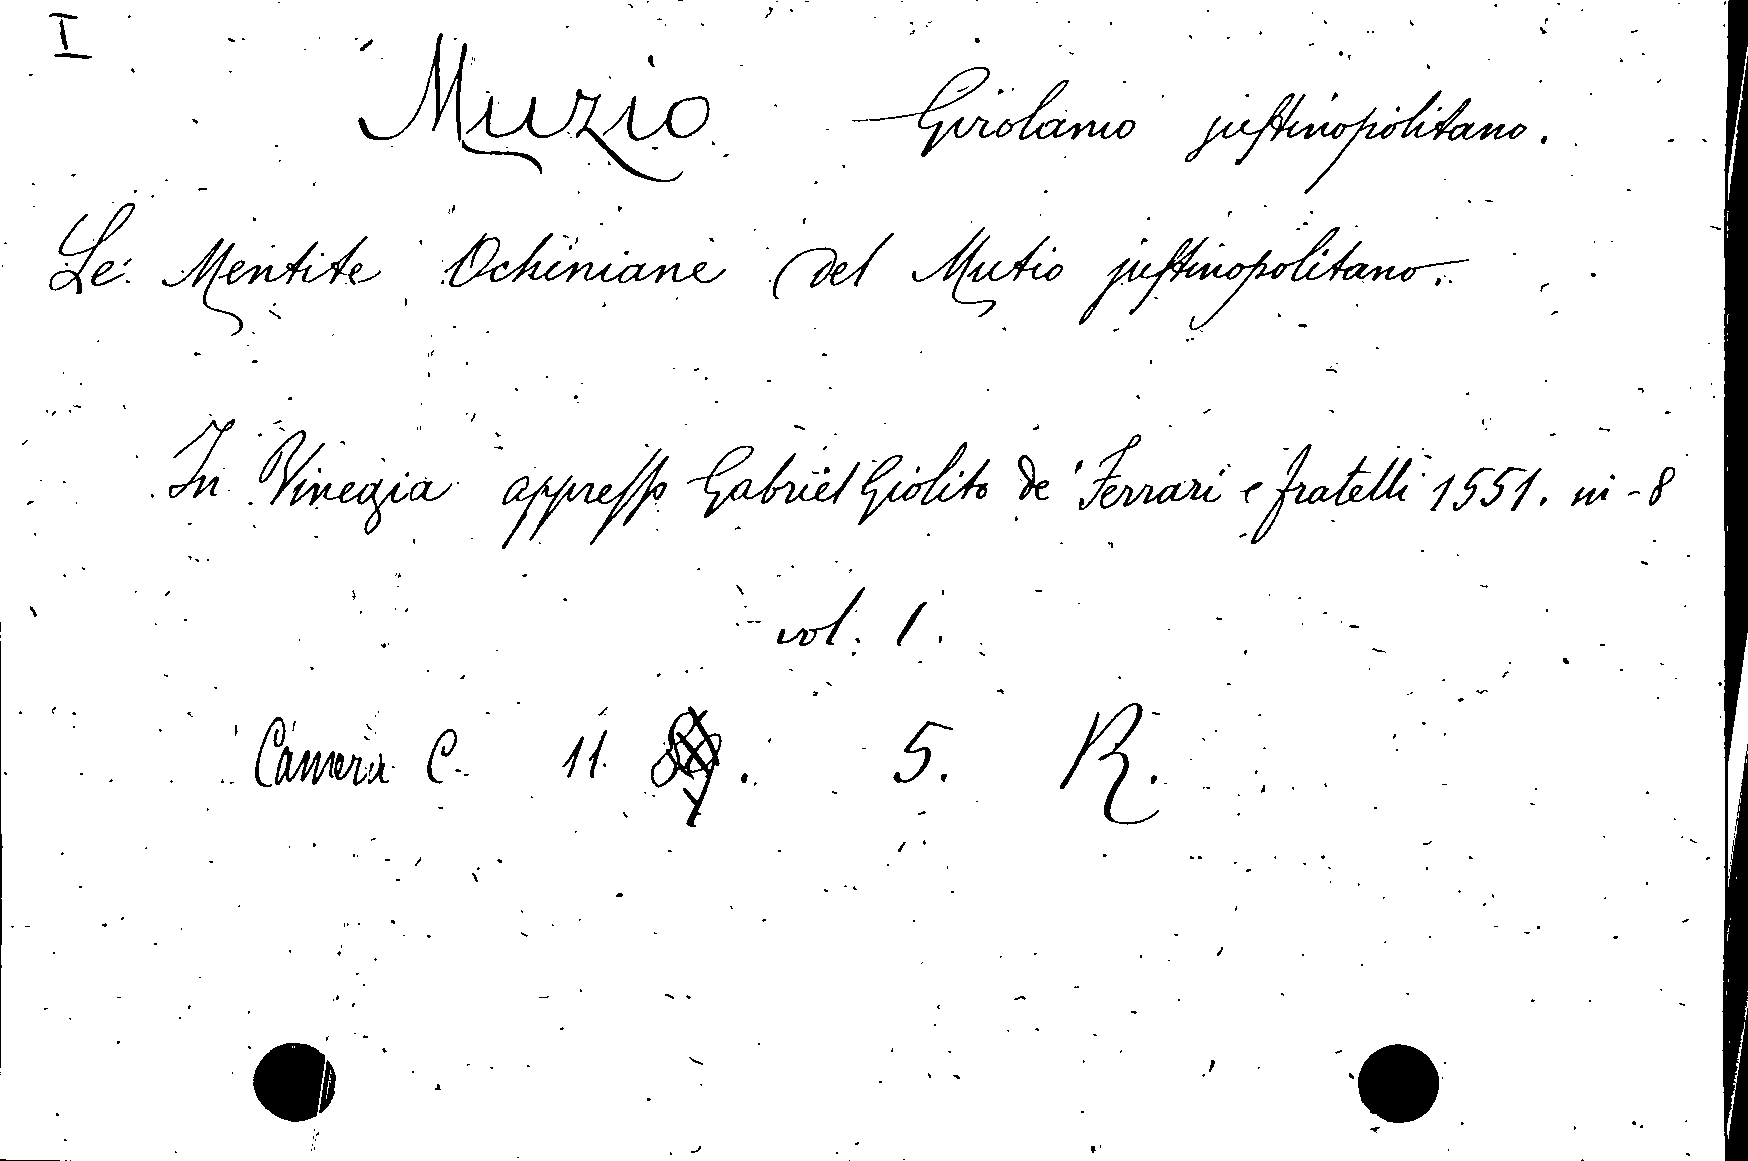 I
Muzio Girolamo juſtinopolitano.
Le Mentite Ochiniane del Mutio juſtinopolitano.
In Vinegia appreſſo Gabriel Giolito de' Ferrari e fratelli 1551. in-8
vol. 1.
Camera C. 11 . 5. R.